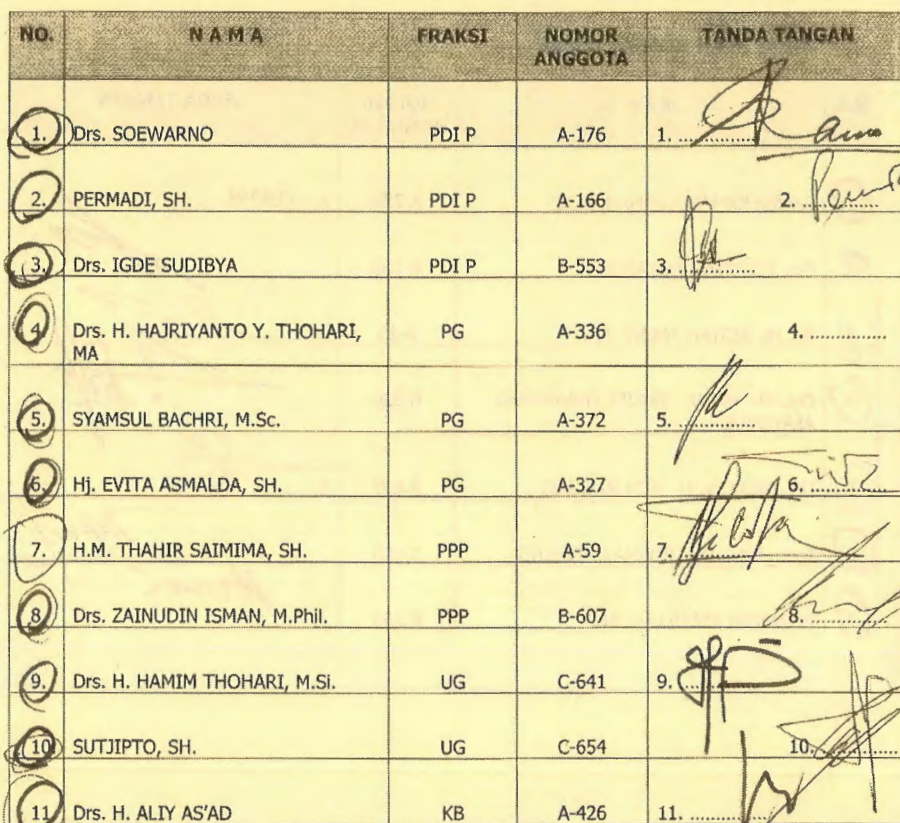 NO. NAMA FRAKSI NOMOR ANGGOTA TANDA TANGAN
1. Drs. SOEWARNO PDI P A-176 1. ..............
2. PERMADI, SH. PDI P A-166 2. ..............
3. Drs. IGDE SUDIBYA PDI P B-553 3. ..............
4. Drs. H. HAJRIYANTO Y. THOHARI, PG A-336 4. ..............
MA
5. SYAMSUL BACHRI, M.Sc. PG A-372 5. ..............
6. Hj. EVITA ASMALDA, SH. PG A-327 6. ..............
7. H.M. THAHIR SAIMIMA, SH. PPP A-59 7. ..............
8. Drs. ZAINUDIN ISMAN, M.Phil. PPP B-607 8. ..............
9. Drs. H. HAMIM THOHARI, M.Si. UG C-641 9. ..............
10. SUTJIPTO, SH. UG C-654 10. ..............
11. Drs. H. ALIY AS'AD KB A-426 11. ..............